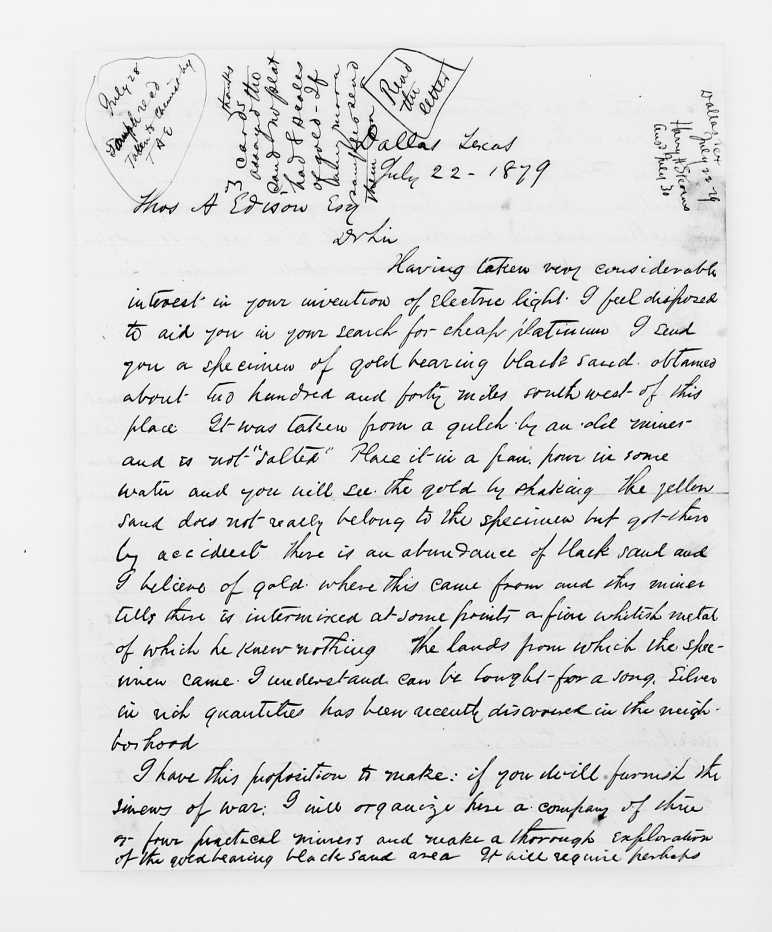 July 28
Sample recd
Taken to Chemist by
TAE
thanks
3 cards
assayed the
sand & no plat
had 8 scales
of gold - If
any more
samples send
them on
Read
the
letter
Dallas Tex
July 22-79
Harry H Stearns
Ansd July 30
Dallas Texas
July 22 - 1879
Thos A Edison Esq
Dr Sir
Having taken very considerable
interest in your invention of electric light. I feel disposed
to aid you in your search for cheap platinum I send
you a specimen of gold bearing black sand. obtained
about two hundred and forty miles southwest of this
place It was taken from a gulch by an old miner
and is not "salted" Place it in a pan, pour in some
water and you will see the gold by shaking The yellow
sand does not really belong to the specimen but got there
by accident There is an abundance of black sand and
I believe of gold where this came from and this miner
tells there is intermixed at some points a fine whitish metal
of which he knew nothing The lands from which the spec-
imen came I understand can be bought for a song. Silver
in rich quantities has been recently discovered in the neigh-
borhood
I have this proposition to make: if you will furnish the
sinews of war; I will organize here a company of three
or four practical miners and make a thorough exploration
of the gold bearing black sand area It will require perhaps